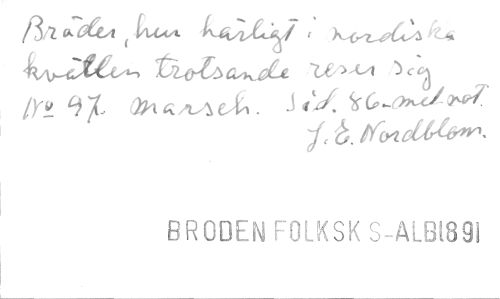 Bröder, hur härligt i nordiska
kvällen trotsande reser sig
No 97. marsch. Sid. 86-med not.
J. E. Nordblom.
BRODEN FOLKSK S-ALB1891